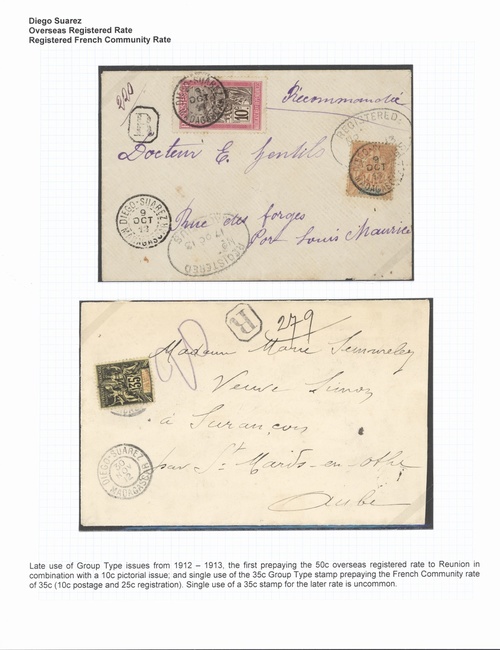 Diego Suarez
Overseas Registered Rate
Registered French Community Rate
220
10
DIEGO-SUAREZ
9
OCT
13
MADAGASCAR
Recommandée
REGISTERED
R
Docteur E. Gentils
9
OCT
13
DIEGO-SUAREZ
9
OCT
13
MADAGASCAR
Rue des forges
Port Louis Maurice
REGISTERED
17 OC 13
R
279
Madame Marie
Veuve Simon
35
à
DIEGO-SUAREZ
MADAGASCAR
par St Mards-en-Othe
Aube
Late use of Group Type issues from 1912 – 1913, the first prepaying the 50c overseas registered rate to Reunion in
combination with a 10c pictorial issue; and single use of the 35c Group Type stamp prepaying the French Community rate
of 35c (10c postage and 25c registration). Single use of a 35c stamp for the later rate is uncommon.